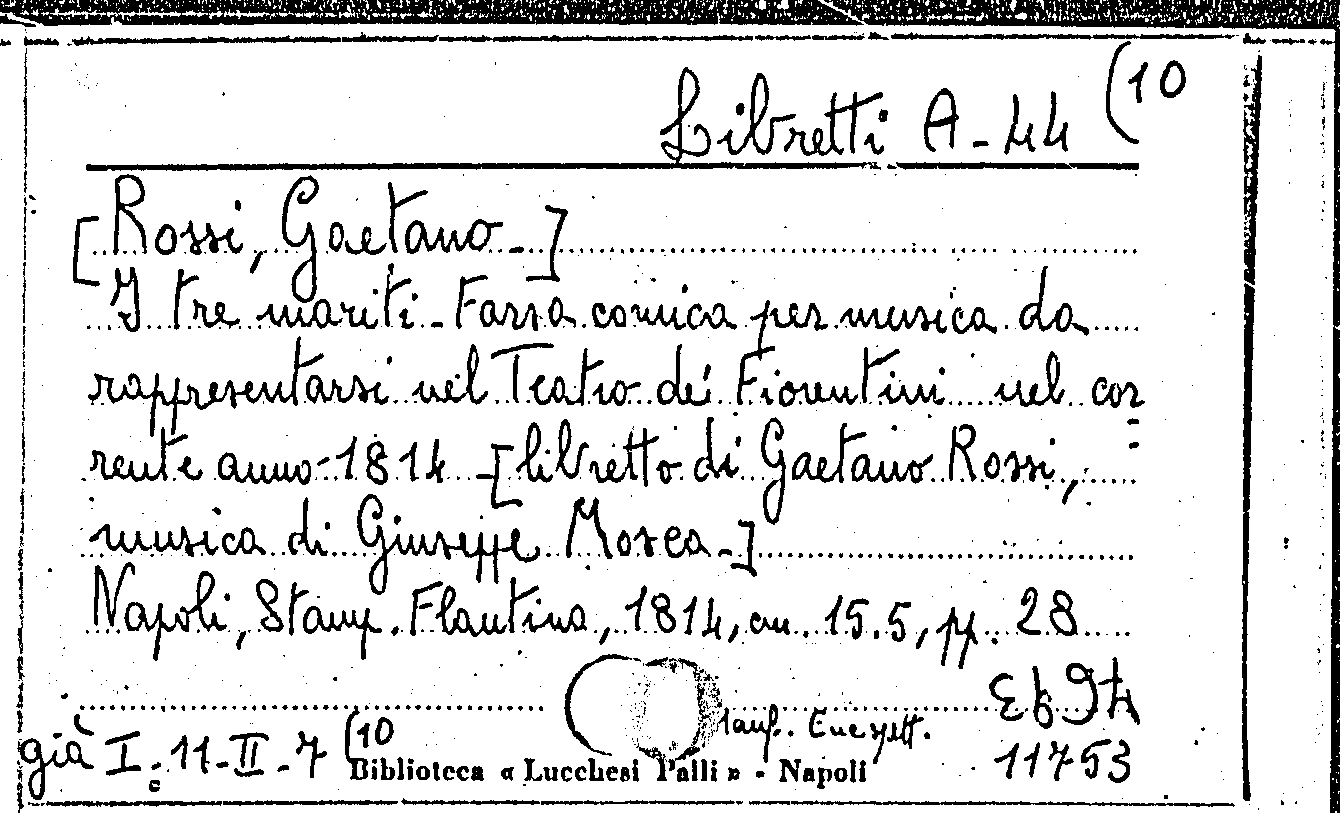 Libretti A-44 (10
[Rossi, Gaetano-]
I tre mariti-Farsa comica per musica da
rappresentarsi nel Teatro dei Fiorentini nel cor=
rente anno 1814-[libretto di Gaetano Rossi,
musica di Giuseppe Mosca-]
Napoli, Stamp. Flautina, 1814, cm. 15.5, pp. 28
già I.-11-II-7 (10
Biblioteca « Lucchesi Palli » - Napoli
11753